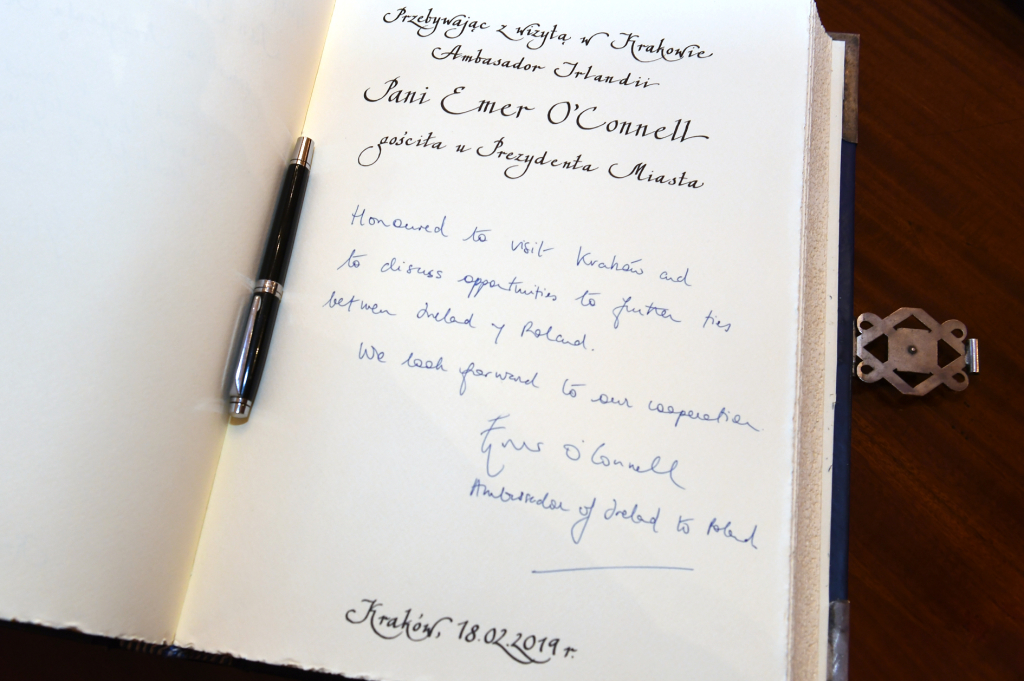 Przebywając z wizytą w Krakowie
Ambasador Irlandii
Pani Emer O'Connell
gościła u Prezydenta Miasta
Honoured to visit Kraków and
to discuss opportunities to further ties
between Ireland & Poland.
We look forward to our cooperation.
Emer O'Connell
Ambassador of Ireland to Poland
Kraków, 18.02.2019 r.